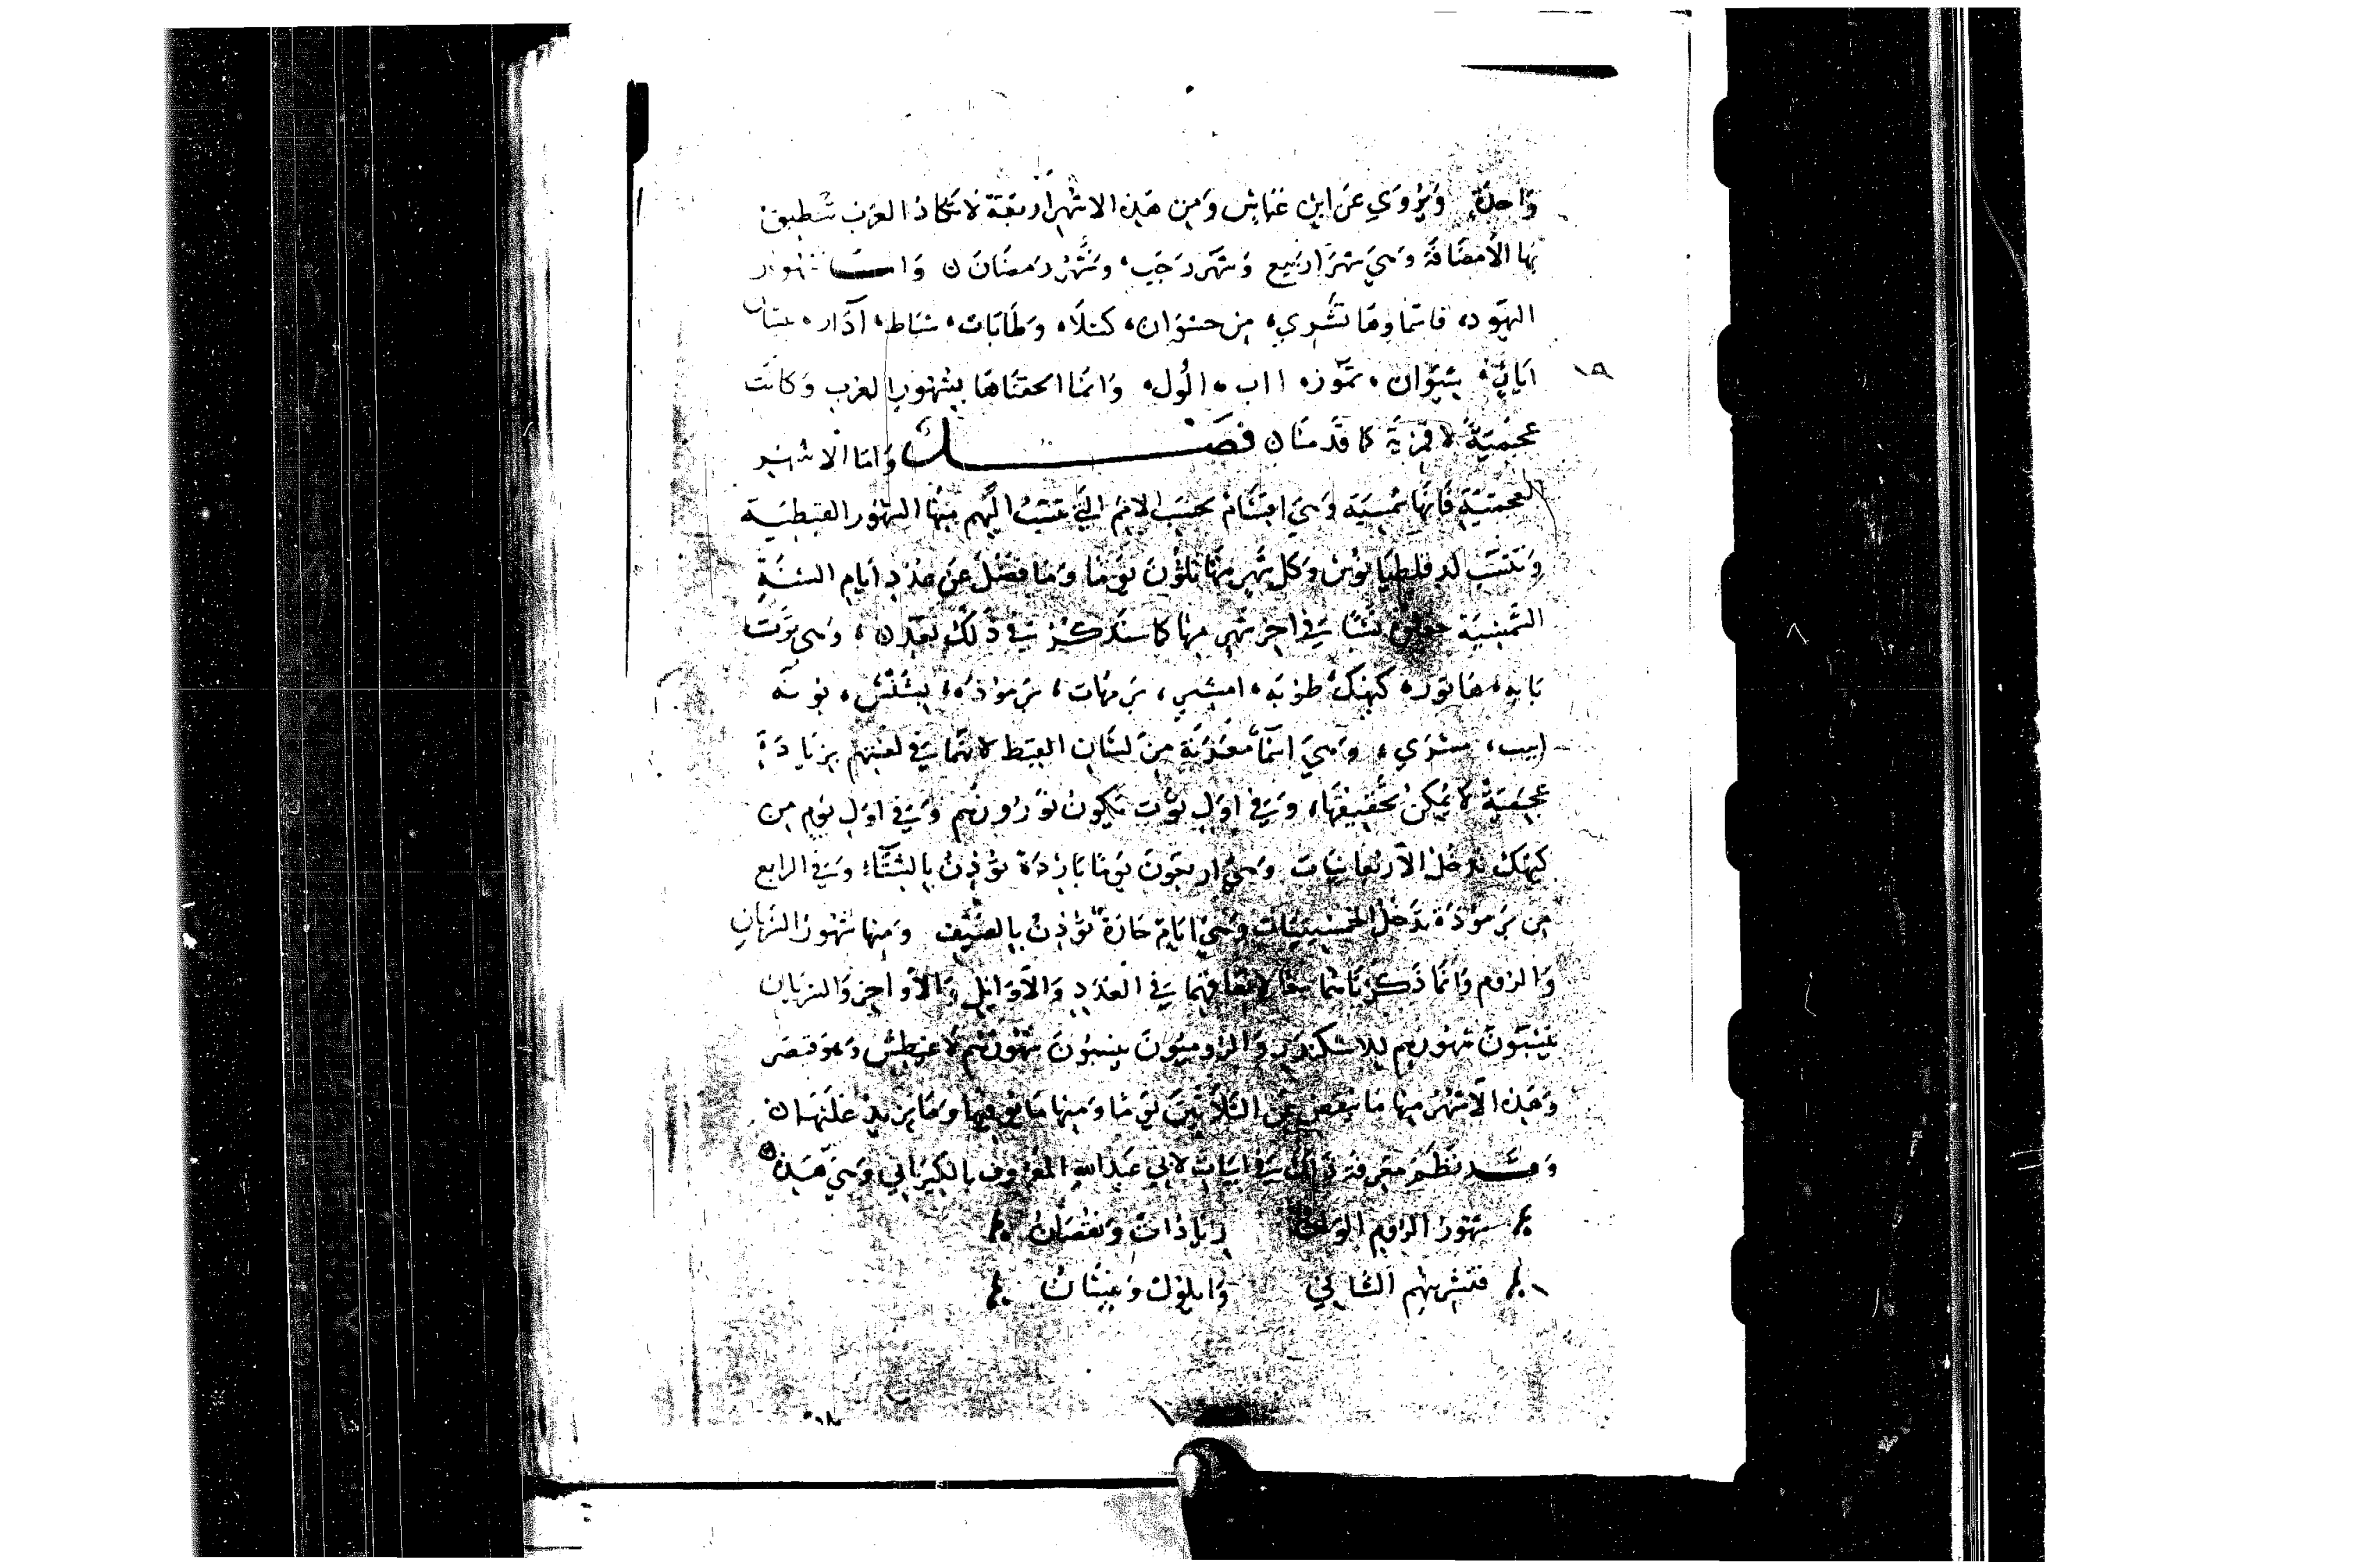 واحدة ويروي عن ابن عباس ومن هذه الاشهر اربعة لا تكاد العرب تنطق
بها الا مضافة وهي شهرا ربيع وشهر رجب، وشهر رمضان واما شهور
اليهود، فاسماوها تشري، مرحشوان، كسلا، وطابات، شباط، آذار، نيسان
ايار، سيوان، تموز، ااب، الول، وانما الحقناها بشهور العرب وكانت
١٩
عجمية لا قمرية كما قدمنا فصل واما الاشهر
العجمية فانها شمسية وهي اقسام بحسب الامم التي تنسب اليهم منها الشهور القبطية
وتنسب لدقلطيانوس وكل شهر منها ثلثون يوما وما فضل عن عدد ايام السنة
الشمسية جعلوه نسيا في اخر شهر منها كما سنذكره في ذلك بعد، وهي توت
بابه، هاتور، كيهك، طوبه، امشير، برمهات، برموذه، بشنس، بونه
ابيب، مسري، وهي اسما معربة من لسان القبط لانها في لغتهم بزيادة
عجمية لا يمكن تحقيقها، وفي اول توت يكون نوروزهم وفي اول يوم من
كيهك تدخل الاربعانيات وهي اربعون يوما باردة تؤذن بالشتاء وفي الرابع
من برموذة تدخل الخمسينيات وهي ايام حارة تؤذن بالصيف ومنها شهور السريان
والروم وانما ذكرناهما معا لاتفاقهما في العدد والاوايل والاواخر والسريان
ينسبون شهورهم للاسكندر والروميون ينسبون شهورهم لاغسطش وهو قيصر
وهذه الاشهر منها ما ينقص عن الثلاثين يوما ومنها ما يوفيها وما يزيد عليها
وقد نظم معرفة ذلك في ابيات لابي عبد الله المعروف بالكيزاني وهي هذه
شهور الروم الوان زيادات ونقصان
فتشرينهم الثاني وايلول ونيسان